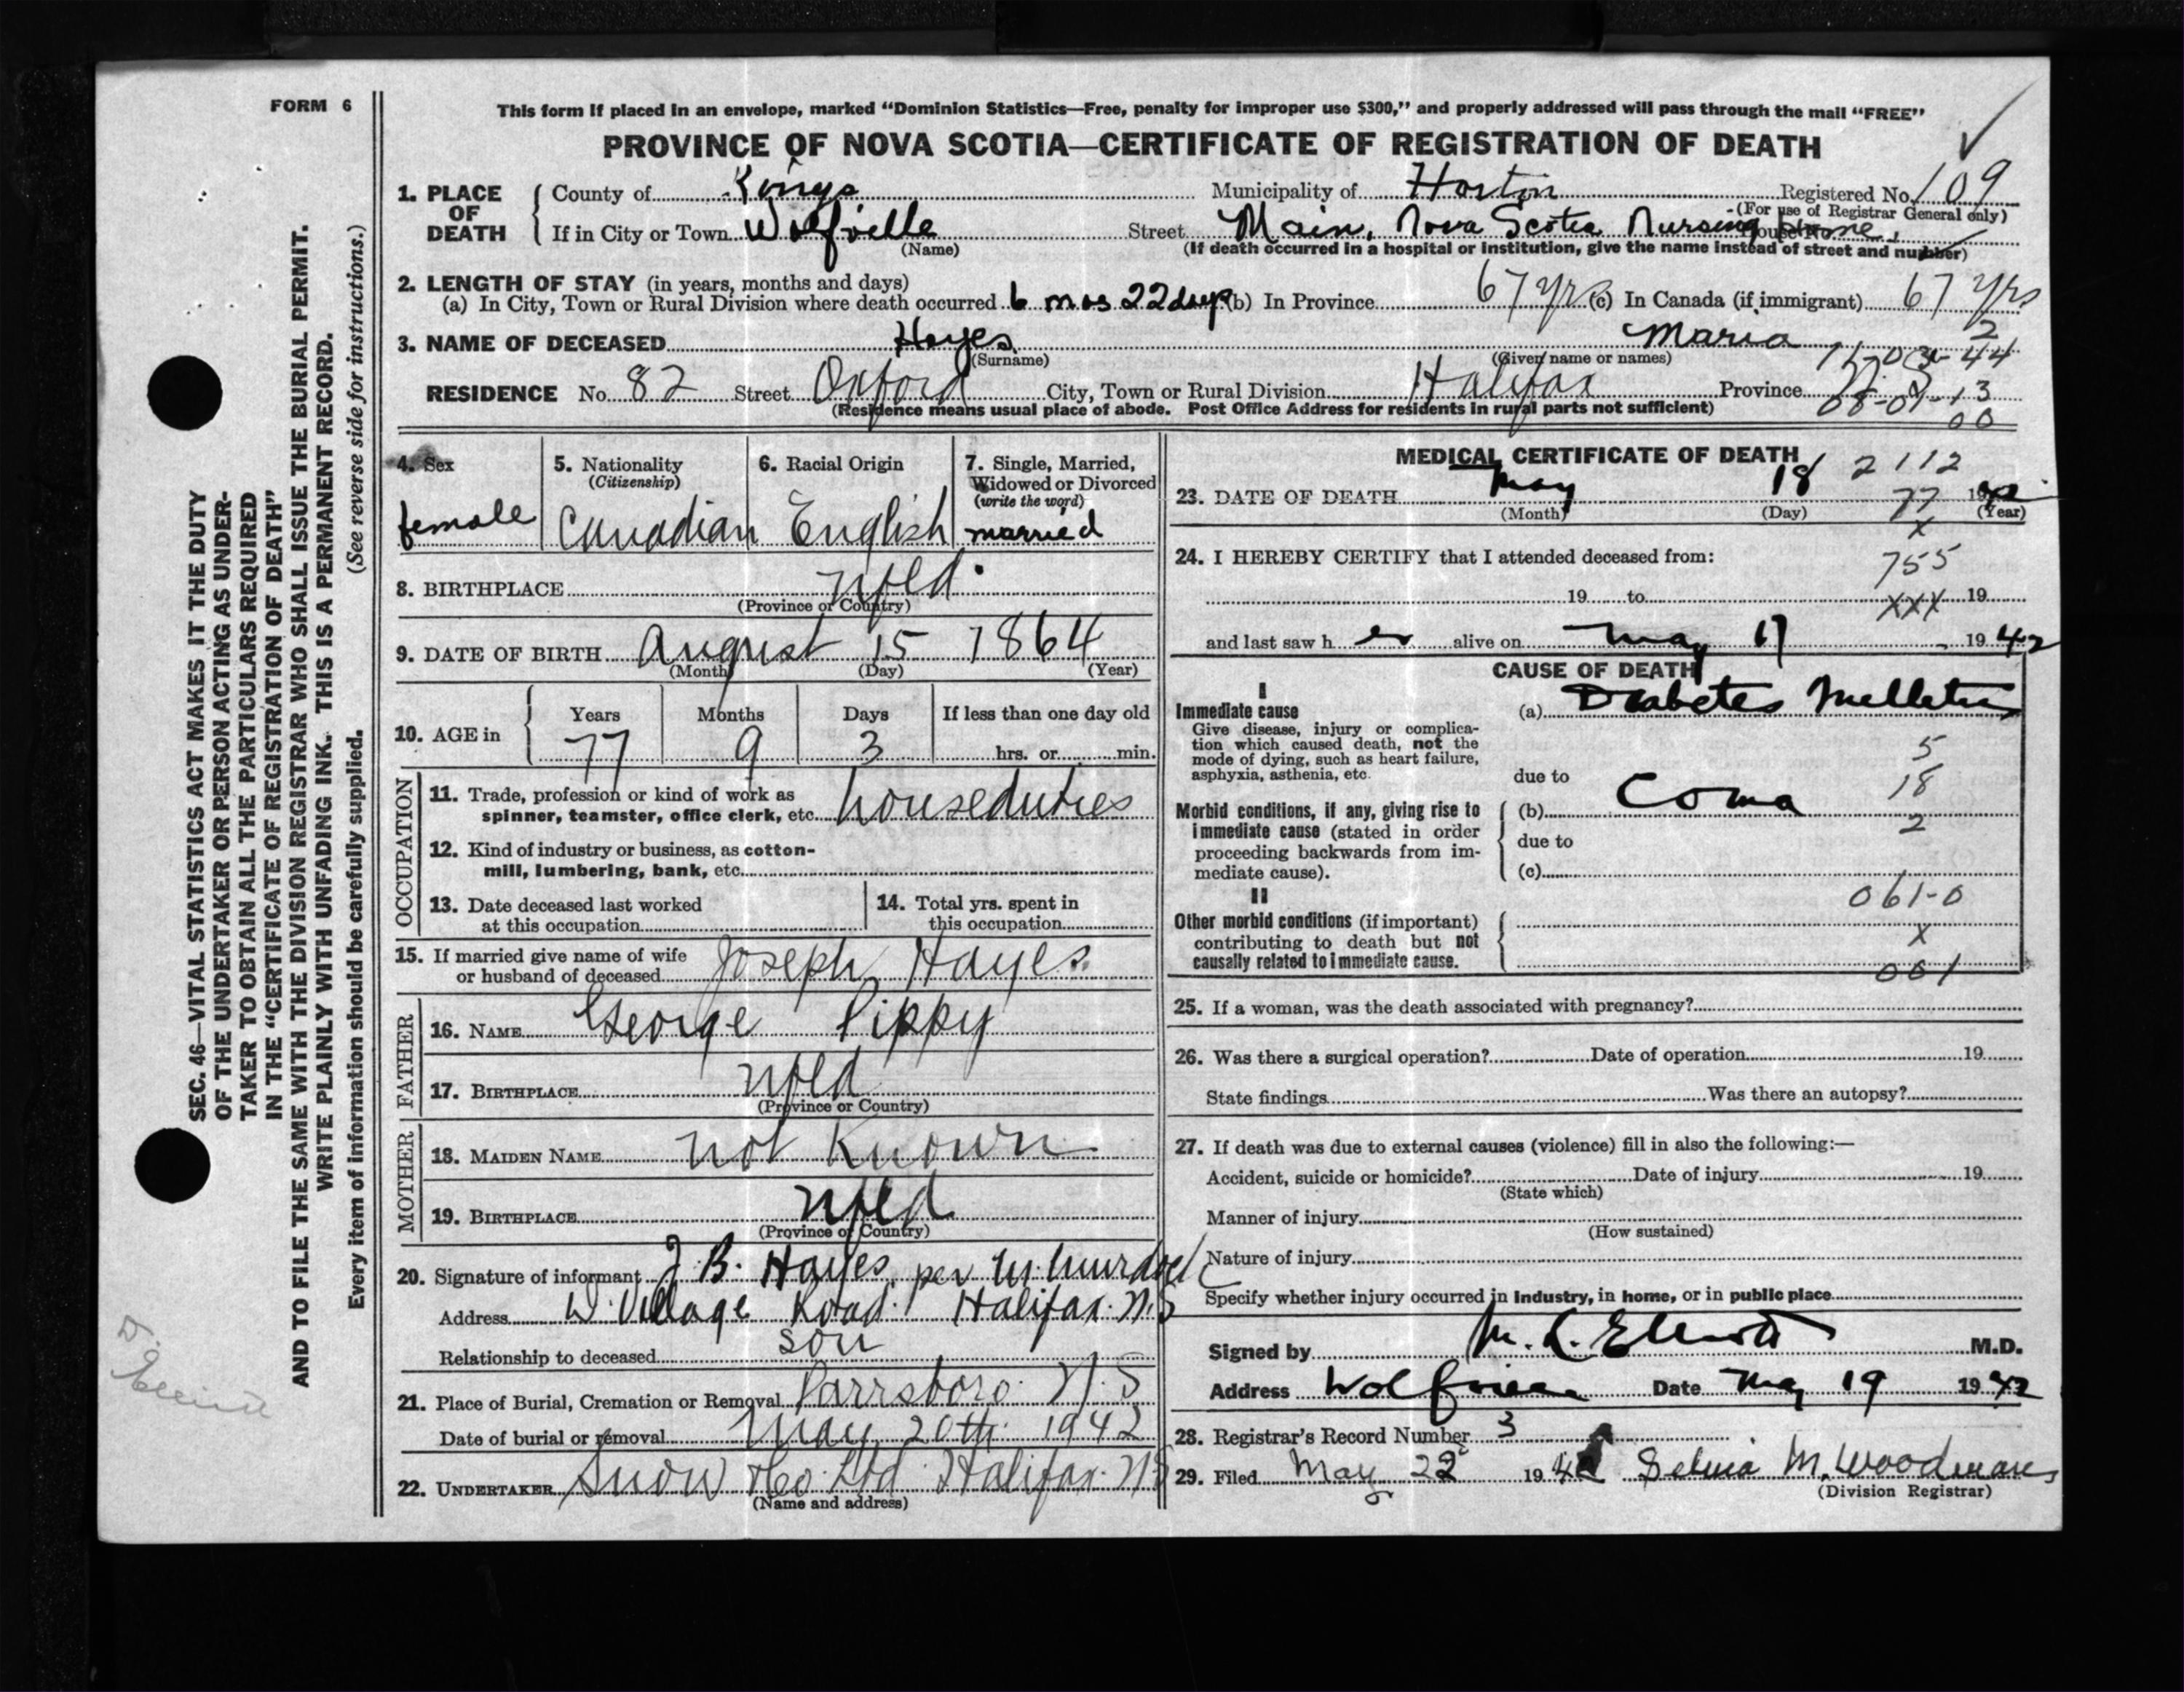 FORM 6
This form if placed in an envelope, marked “Dominion Statistics—Free, penalty for improper use $300,” and properly addressed will pass through the mail “FREE”
PROVINCE OF NOVA SCOTIA—CERTIFICATE OF REGISTRATION OF DEATH
1. PLACE OF DEATH
County of Kings Municipality of Horton Registered No. 109
(For use of Registrar General only)
If in City or Town Wolfville Street Main, Nova Scotia Nursing Home, House No.
(Name) (If death occurred in a hospital or institution, give the name instead of street and number)
2. LENGTH OF STAY (in years, months and days)
(a) In City, Town or Rural Division where death occurred 6 mos 22 days (b) In Province 67 yrs (c) In Canada (if immigrant) 67 yrs
3. NAME OF DECEASED Hayes Maria 2
(Surname) (Given name or names)
RESIDENCE No. 82 Street Oxford City, Town or Rural Division Halifax Province N.S.
08-01-13
(Residence means usual place of abode. Post Office Address for residents in rural parts not sufficient)
00
4. Sex
female
5. Nationality
(Citizenship)
Canadian
6. Racial Origin
English
7. Single, Married,
Widowed or Divorced
(write the word)
married
8. BIRTHPLACE Nfld.
(Province or Country)
9. DATE OF BIRTH August 15 1864
(Month) (Day) (Year)
10. AGE in
Years Months Days If less than one day old
77 9 3 hrs. or min.
OCCUPATION
11. Trade, profession or kind of work as
spinner, teamster, office clerk, etc. houseduties
12. Kind of industry or business, as cotton-
mill, lumbering, bank, etc.
13. Date deceased last worked
at this occupation
14. Total yrs. spent in
this occupation
15. If married give name of wife
or husband of deceased Joseph Hayes.
FATHER
16. NAME George Pippy
17. BIRTHPLACE Nfld
(Province or Country)
MOTHER
18. MAIDEN NAME not Known
19. BIRTHPLACE Nfld
(Province or Country)
20. Signature of informant J. B. Hayes, per
Address W. Village Road. Halifax. N.S
Relationship to deceased son
21. Place of Burial, Cremation or Removal Parrsboro. N.S
Date of burial or removal May 20th 1942
22. UNDERTAKER Snow & Co. Ltd. Halifax. N.S
(Name and address)
MEDICAL CERTIFICATE OF DEATH
2112
23. DATE OF DEATH May 18 1942
(Month) (Day) (Year)
77
x
24. I HEREBY CERTIFY that I attended deceased from:
755
19 to 19
XXX
and last saw her alive on May 17 1942
CAUSE OF DEATH
I
Immediate cause
Give disease, injury or complica-
tion which caused death, not the
mode of dying, such as heart failure,
asphyxia, asthenia, etc.
(a) Diabetes Mellitus
5
due to
18
Morbid conditions, if any, giving rise to
immediate cause (stated in order
proceeding backwards from im-
mediate cause).
(b) Coma
2
due to
(c)
II
061-0
Other morbid conditions (if important)
contributing to death but not
causally related to immediate cause.
x
061
25. If a woman, was the death associated with pregnancy?
26. Was there a surgical operation? Date of operation 19
State findings Was there an autopsy?
27. If death was due to external causes (violence) fill in also the following:—
Accident, suicide or homicide? Date of injury 19
(State which)
Manner of injury
(How sustained)
Nature of injury
Specify whether injury occurred in industry, in home, or in public place
Signed by M. R. Elliott M.D.
Address Wolfville Date May 19 1942
28. Registrar's Record Number 3
29. Filed May 22 1942 Selina M. Woodman
(Division Registrar)
SEC. 46—VITAL STATISTICS ACT MAKES IT THE DUTY
OF THE UNDERTAKER OR PERSON ACTING AS UNDER-
TAKER TO OBTAIN ALL THE PARTICULARS REQUIRED
IN THE “CERTIFICATE OF REGISTRATION OF DEATH”
AND TO FILE THE SAME WITH THE DIVISION REGISTRAR WHO SHALL ISSUE THE BURIAL PERMIT.
WRITE PLAINLY WITH UNFADING INK. THIS IS A PERMANENT RECORD.
Every item of information should be carefully supplied. (See reverse side for instructions.)